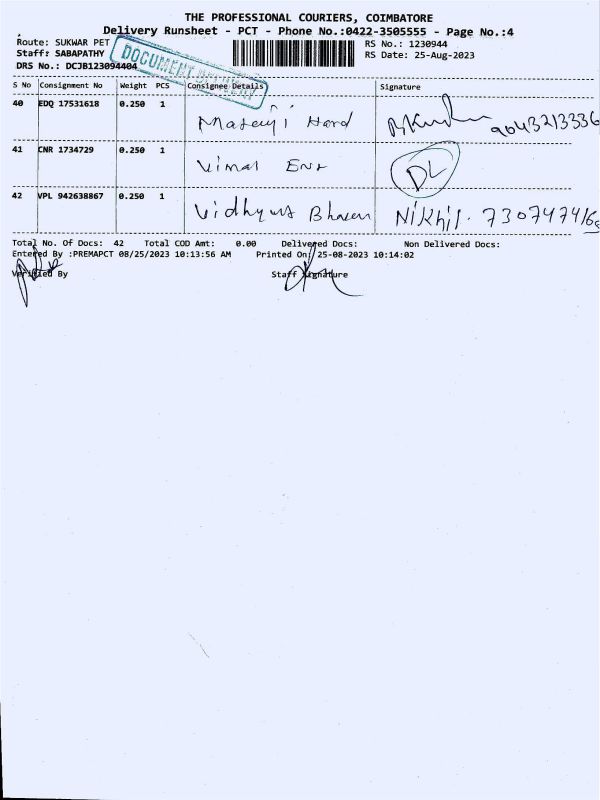 THE PROFESSIONAL COURIERS, COIMBATORE
Delivery Runsheet - PCT - Phone No.:0422-3505555 - Page No.:4
Route: SUKWAR PET RS No.: 1230944
Staff: SABAPATHY RS Date: 25-Aug-2023
DRS No.: DCJB123094404
DOCUMENT
S No Consignment No Weight PCS Consignee Details Signature
40 EDQ 17531618 0.250 1 Hard 9043213336
41 CNR 1734729 0.250 1 Vimal Ent DL
42 VPL 942638867 0.250 1 Nikhil. 730747416
Total No. Of Docs: 42 Total COD Amt: 0.00 Delivered Docs: Non Delivered Docs:
Entered By :PREMAPCT 08/25/2023 10:13:56 AM Printed On: 25-08-2023 10:14:02
Verified By Staff Signature